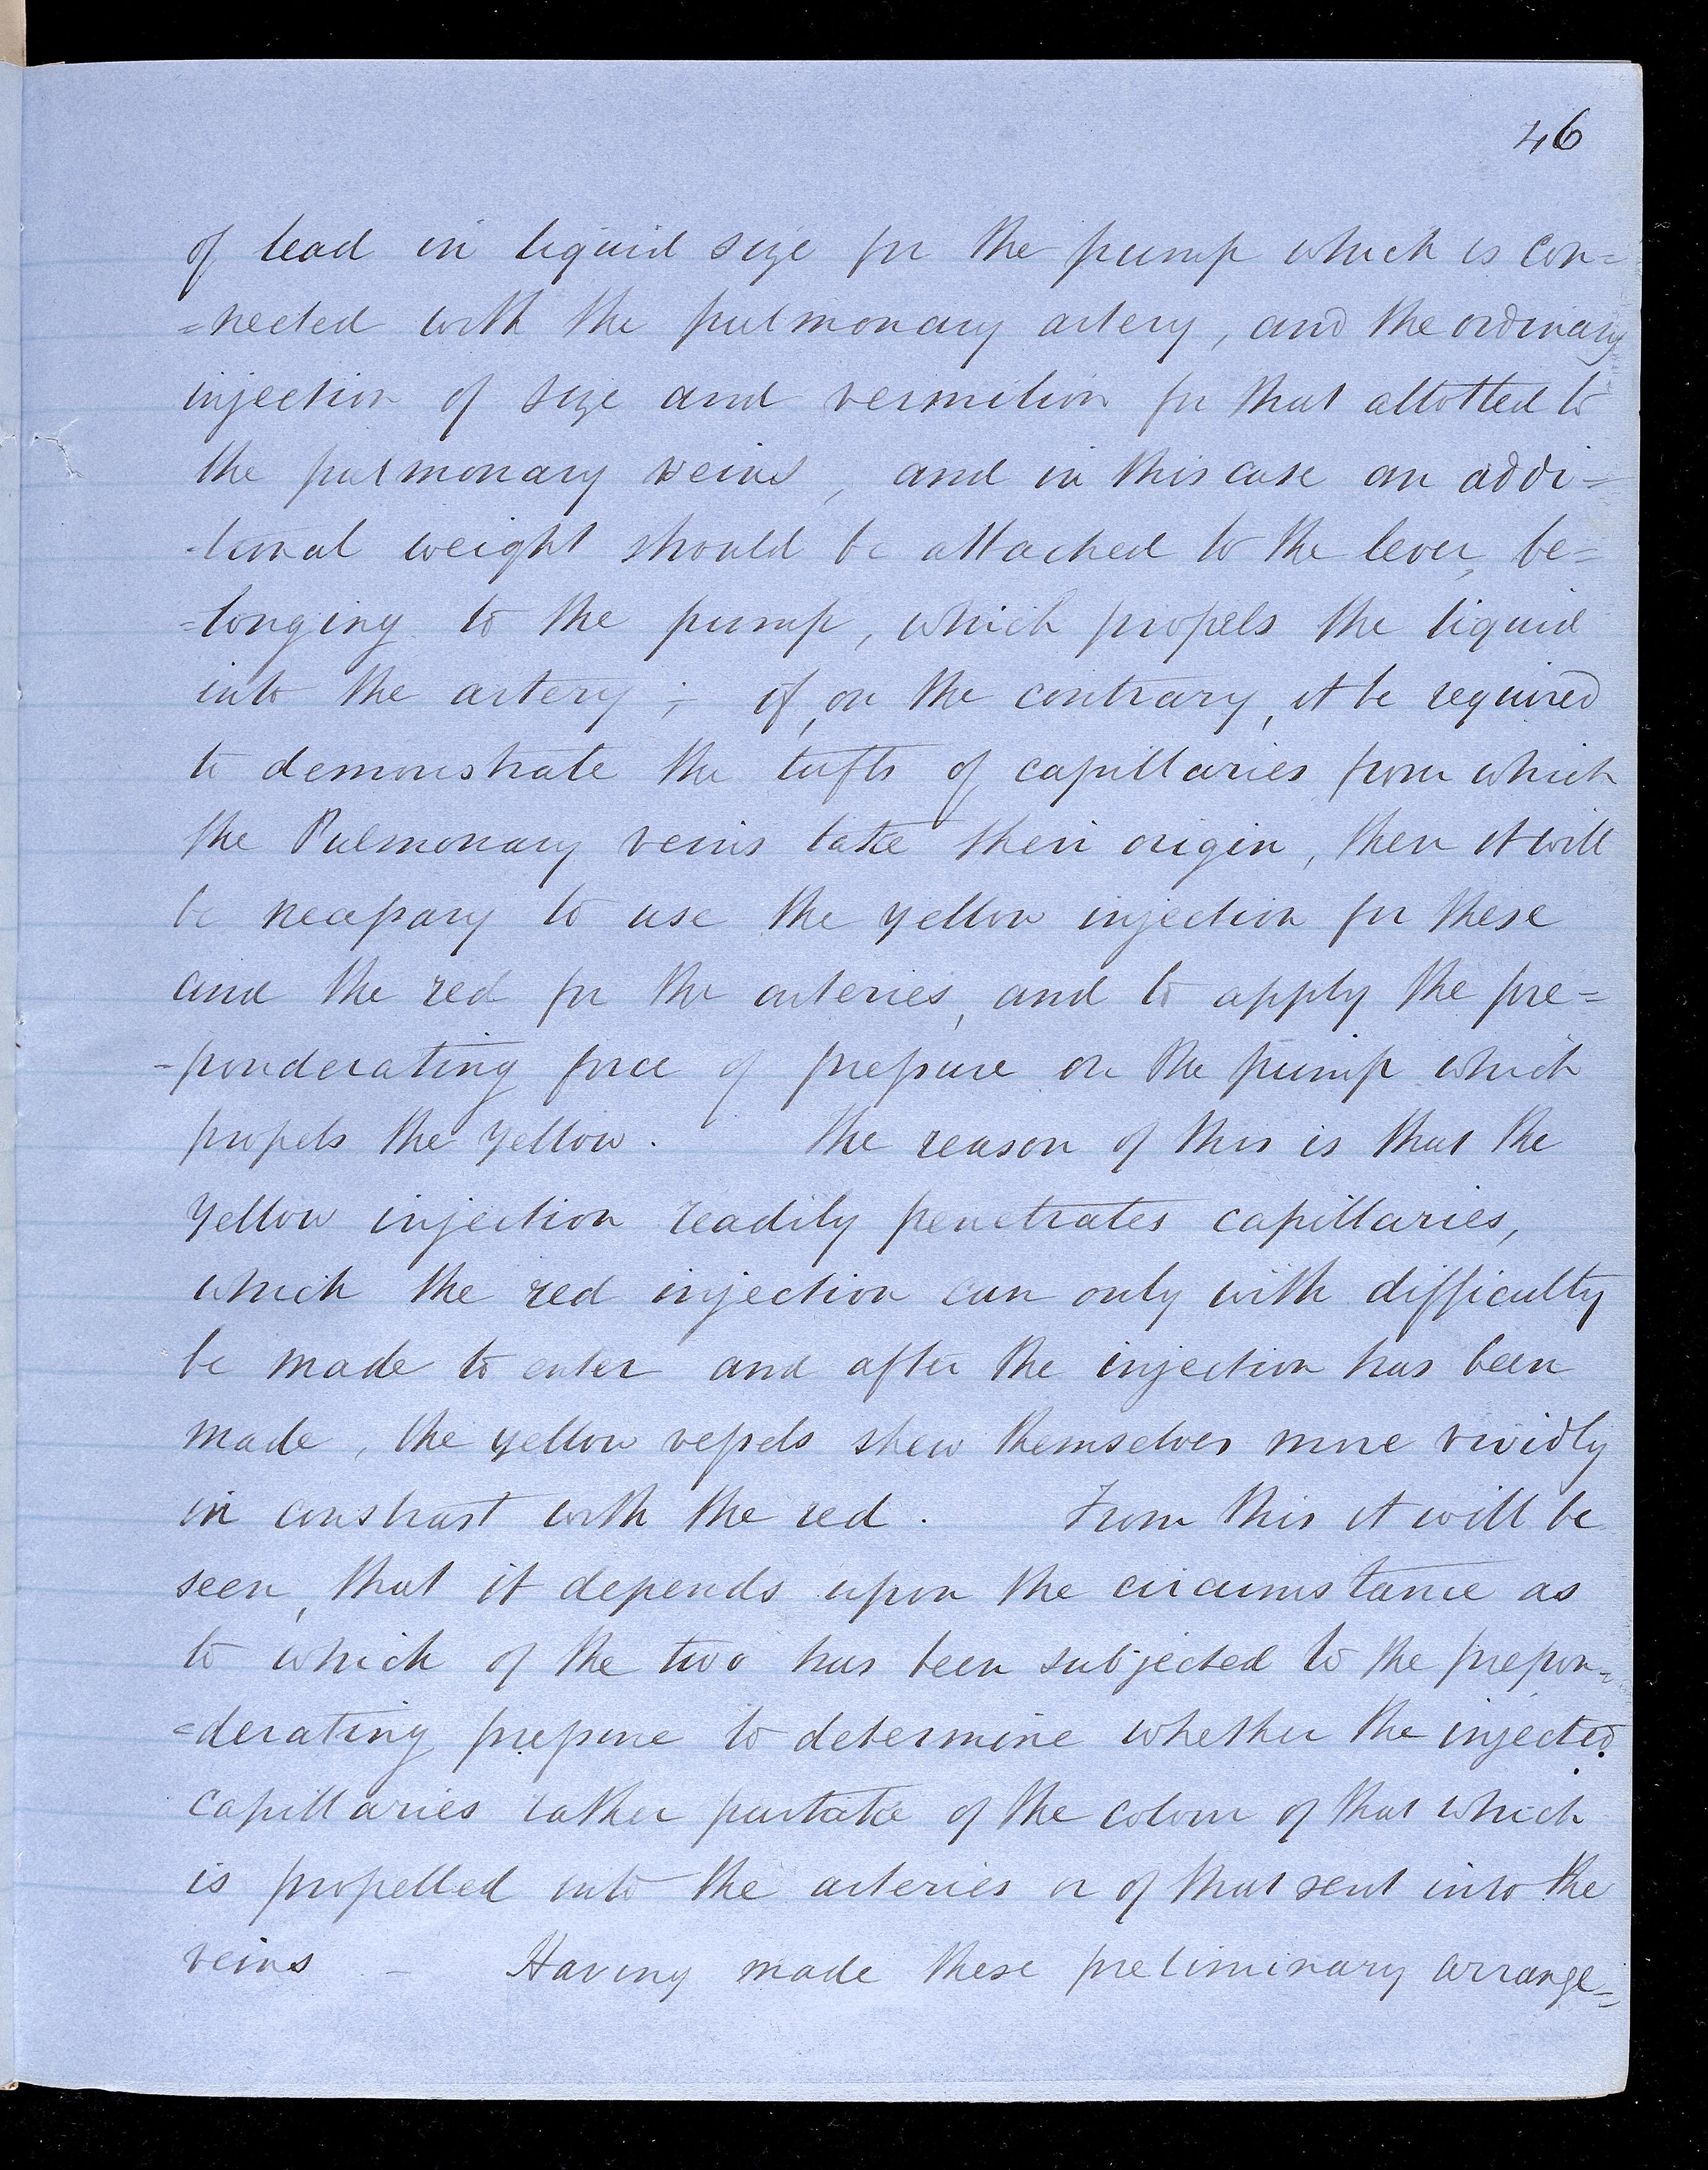 46
of lead in liquid size for the pump which is con=
=nected with the pulmonary artery, and the ordinary
injection of size and vermilion for that allotted to
the pulmonary veins, and in this case an addi=
-tional weight should be attached to the lever, be=
=longing to the pump, which propels the liquid
into the artery; if, on the contrary, it be required
to demonstrate the tufts of capillaries from which
the Pulmonary veins take their origin, then it will
be necessary to use the yellow injection for these
and the red for the arteries, and to apply the pre=
-ponderating force of pressure on the pump which
propels the yellow. The reason of this is that the
yellow injection readily penetrates capillaries,
which the red injection can only with difficulty
be made to enter and after the injection has been
made, the yellow vessels shew themselves more vividly
in constrast with the red. From this it will be
seen, that it depends upon the circumstance as
to which of the two has been subjected to the prepon=
=derating pressure to determine whether the injected
capillaries rather partake of the colour of that which
is propelled into the arteries or of that sent into the
veins – Having made these preliminary arrange=